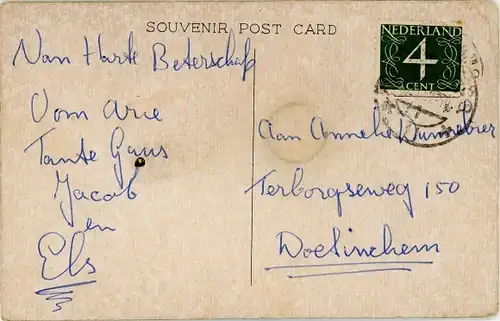 SOUVENIR POST CARD
NEDERLAND
4
CENT
Van Harte Beterschap
Oom Arie
Tante Gaus
Jacob
en
Els
Aan Anneke
Terborgseweg 150
Doetinchem